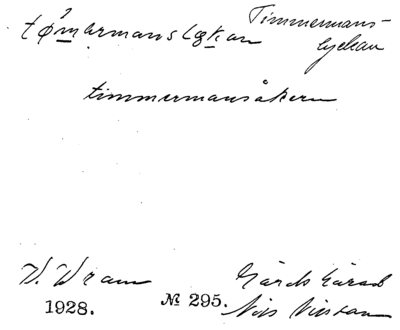 tǿm̲ərmanslœk̲an Timmermans-
lyckan
timmermansåkern
V. Wram Gärds härad
1928. № 295. Nils